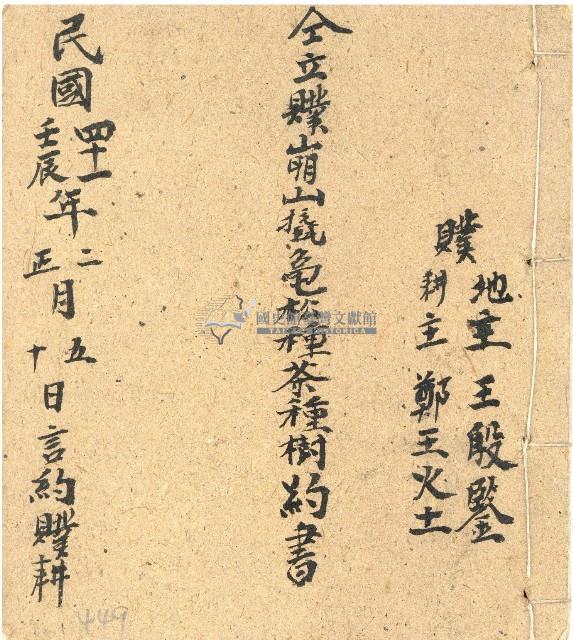 地主 王殿鑒
贌耕主 鄭王火土
仝立贌崩山撬龟𪹚種茶種樹約書
民國四十一年二月五日言約贌耕
壬辰 正 十
國史館臺灣文獻館
TAIWAN HISTORICA
449